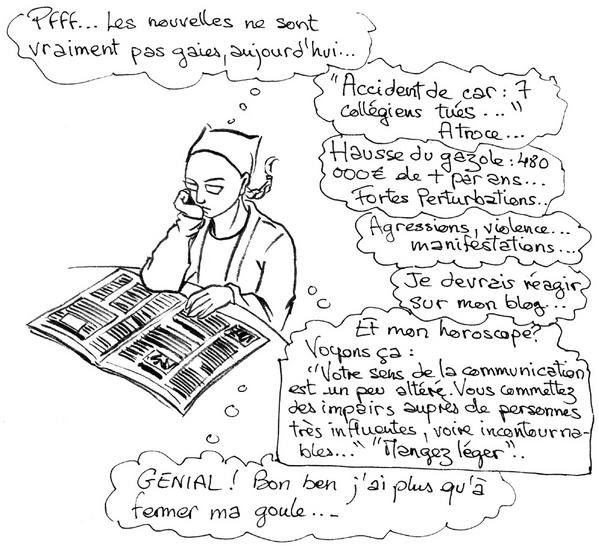 Pfff... Les nouvelles ne sont
vraiment pas gaies, aujourd'hui...
"Accident de car : 7
collégiens tués..."
Atroce...
Hausse du gazole : 480
000€ de + par ans...
Fortes Perturbations..
Agressions, violence...
manifestations...
Je devrais réagir
sur mon blog...
Et mon horoscope?
Voyons ça :
"Votre sens de la communication
est un peu altéré. Vous commettez
des impairs auprès de personnes
très influentes, voire incontourna-
bles..." "Mangez léger"..
GENIAL! Bon ben j'ai plus qu'à
fermer ma goule...